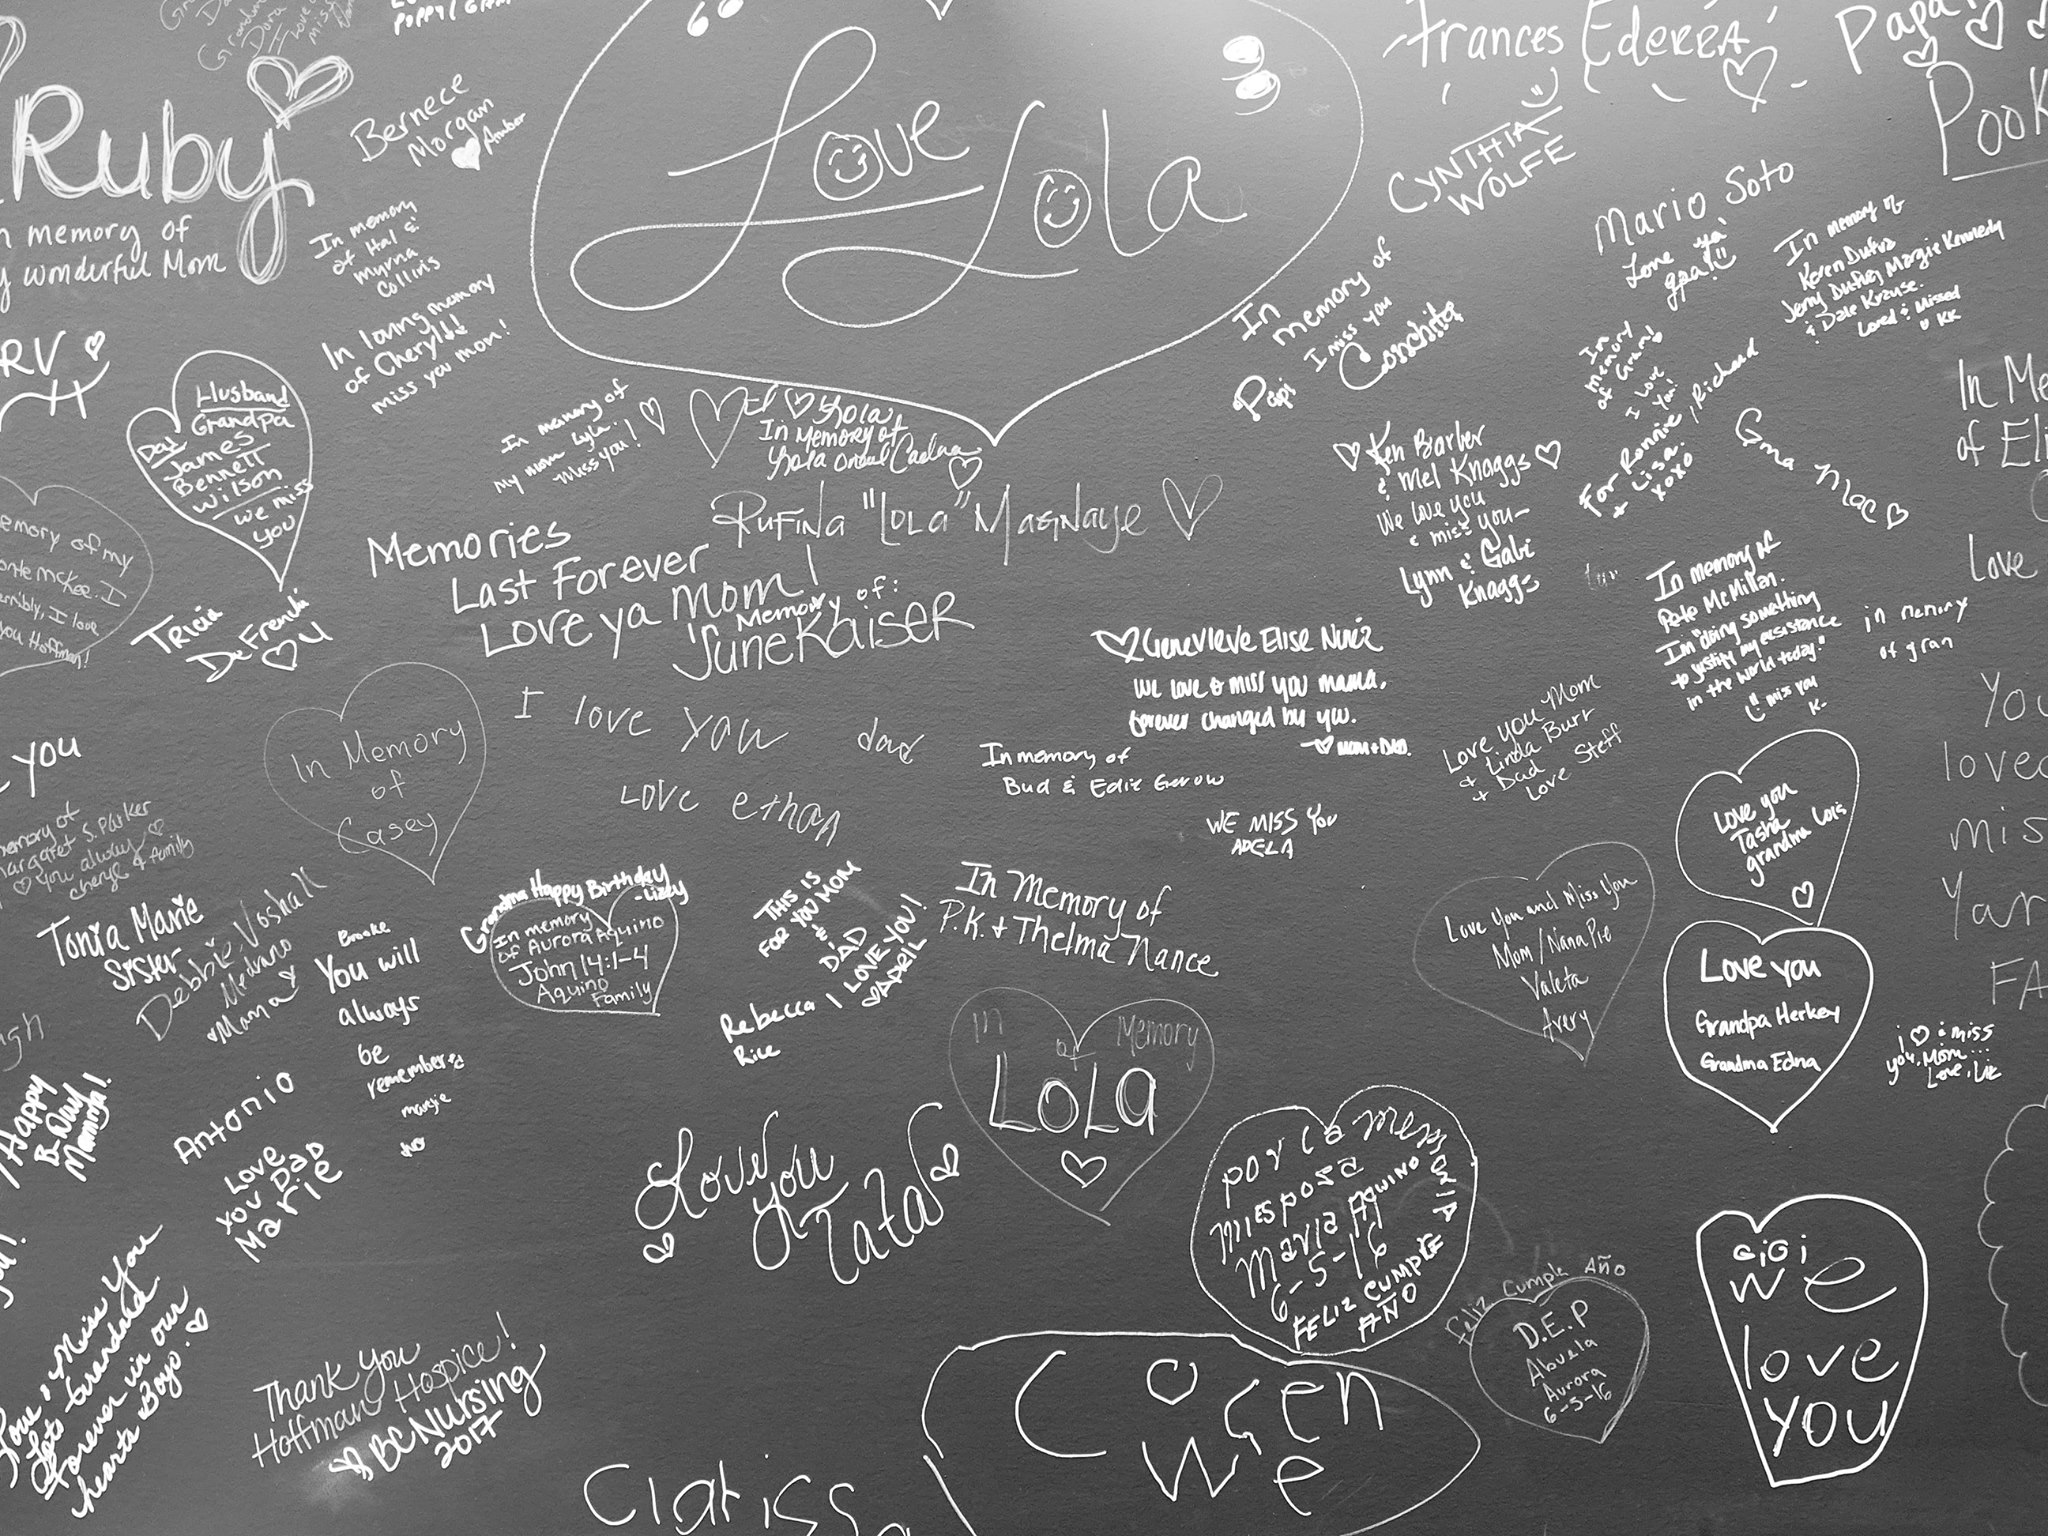 Ruby
memory of
wonderful Mom
Bernece
Morgan
Amber
In memory
of Hal &
Myrna
Collins
In loving memory
of Cheryl!!
miss you mom!
Love
Lola
Frances Ederra
Papa
CYNTHIA
WOLFE
Mario Soto
Love ya'
gpa!
In memory of
Jerry Dufus, Margie Kennedy
& Dale Krause.
Loved & Missed
KK
In
memory of
I miss you
Papi
Conchita
In
memory
of Gram!
I love
you!
For Ronnie, Richard
+ Lisa.
xoxo
Gma Mac
RV
Husband
Grandpa
Dad
James
Bennett
Wilson
we miss
you
Tricia
DeFrenchi
In memory of
My mom Lyla.
Miss you!
Lola
In Memory of
RUFINA "LOLA" MAGNAYE
Memories
Last Forever
Love ya Mom!
In Memory of:
June Kaiser
Ken Barber
& Mel Knaggs
We love you
& miss you-
Lynn & Gabi
Knaggs
In memory of
Pete McMillan.
I'm "doing something
to justify my existence
in the world today."
miss you
K-
in memory
of gran
emory of my
I love
you Hoffman!
In Memory
of
Casey
I love you dad
Love ethan
We love & miss you mama.
forever changed by you.
Mom + Dad.
In memory of
Bud & Edie Gerow
WE MISS YOU
ADELA
Love you Mom
& Linda Burr
+ Dad
Love Steff
Love you
Tasha
grandma Lois
Love
You
YOU
emory of
argaret S. Parker
You always
Cheryl & family
Tonia Marie
Sister
Debbie Voshall
Medrano
Mama
Brooke
You will
always
be
remembered
margie
Grandma Happy Birthday
-Lizzy
In memory
of Aurora Aquino
John 14:1-4
Aquino
Family
THIS IS
FOR YOU MOM
&
DAD
I LOVE YOU!
APRIL
Rebecca
Rice
In Memory of
P.K. + Thelma Nance
Love You and Miss You
Mom/Nana Pie
Valeta
Avery
Love you
Grandpa Herkey
Grandma Edna
i & miss
you, Mom...
Love, Liz
In Memory
of
LOLA
Happy
B-Day
Mamja!
Antonio
Love
You Dad
Marie
Love
you
Tata
por la memoria
mi esposa
Maria Aquino
6-5-16
FELIZ CUMPLE
AÑO
Feliz Cumple Año
D.E.P
Abuela
Aurora
6-5-16
GiGi
we
love
you
Love & Miss You
Lots Grandad
Forever in our
hearts Boyo.
Thank you
Hoffman Hospice!
BC Nursing
2017